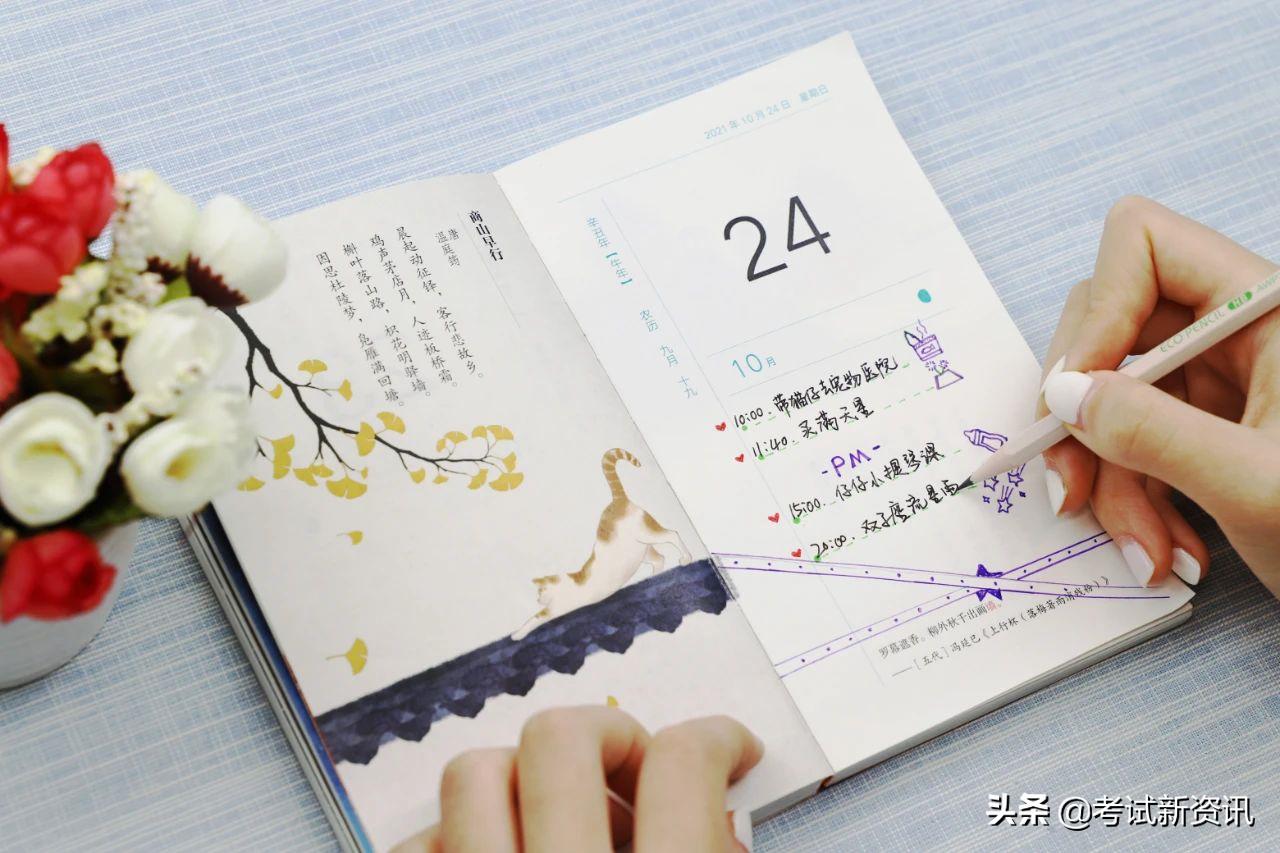 商山早行
唐
温庭筠
晨起动征铎，客行悲故乡。
鸡声茅店月，人迹板桥霜。
槲叶落山路，枳花明驿墙。
因思杜陵梦，凫雁满回塘。
2021年10月24日 星期日
24
辛丑年【牛年】 农历 九月 十九
10月
10:00. 带猫仔去宠物医院
11:40. 买满天星
-PM-
15:00. 仔仔小提琴课
20:00. 双子座流星雨
罗幕遮香。柳外秋千出画墙。
——［五代］冯延巳《上行杯（落梅著雨消残粉）》
ECO PENCIL HB
头条 @考试新资讯